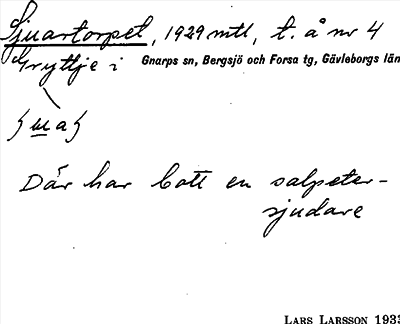 Sjuartorpet, 1929 mtl, t. å nr 4
Gryttje i Gnarps sn, Bergsjö och Forsa tg, Gävleborgs län
Där har bott en salpeter-
sjudare
LARS LARSSON 1933